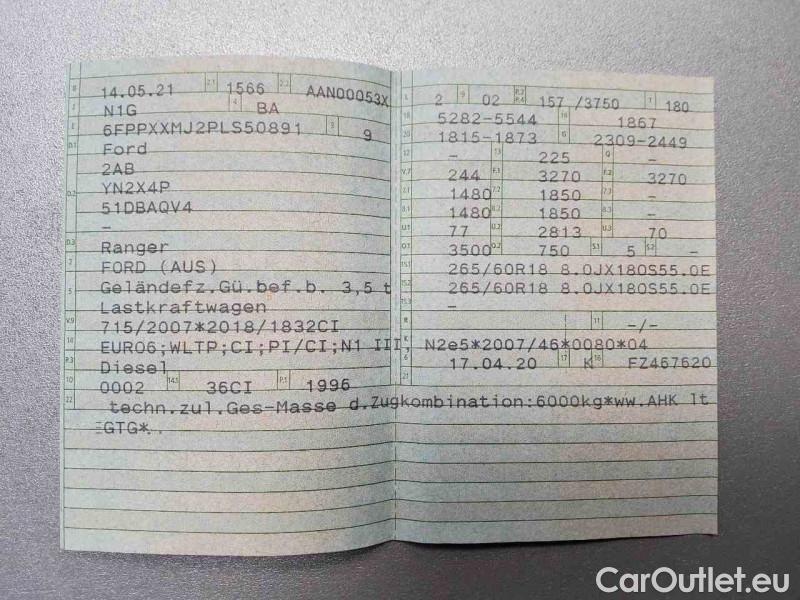 B 14.05.21 2.1 1566 2.2 AAN00053X
J N1G 4 BA
E 6FPPXXMJ2PLS50891 3 9
D.1 Ford
2AB
D.2 YN2X4P
51DBAQV4
-
D.3 Ranger
2 FORD (AUS)
5 Geländefz.Gü.bef.b. 3,5 t
Lastkraftwagen
V.9 715/2007*2018/1832CI
14 EURO6;WLTP;CI;PI/CI;N1 III, N2
P.3 Diesel
10 0002 14.1 36CI P.1 1996
22 techn.zul.Ges-Masse d.Zugkombination:6000kg*ww.AHK lt
EGTG*
L 2 9 02 P.2 P.4 157 /3750 T 180
18 5282-5544 19 1867
20 1815-1873 G 2309-2449
12 - 13 225 Q -
V.7 244 F.1 3270 F.2 3270
7.1 1480 7.2 1850 7.3 -
8.1 1480 8.2 1850 8.3 -
U.1 77 U.2 2813 U.3 70
O.1 3500 O.2 750 S.1 5 S.2 -
15.1 265/60R18 8.0JX180S55.0E
15.2 265/60R18 8.0JX180S55.0E
15.3 -
R 11 -/-
K e5*2007/46*0080*04
6 17.04.20 17 K 16 FZ467620
21
CarOutlet.eu